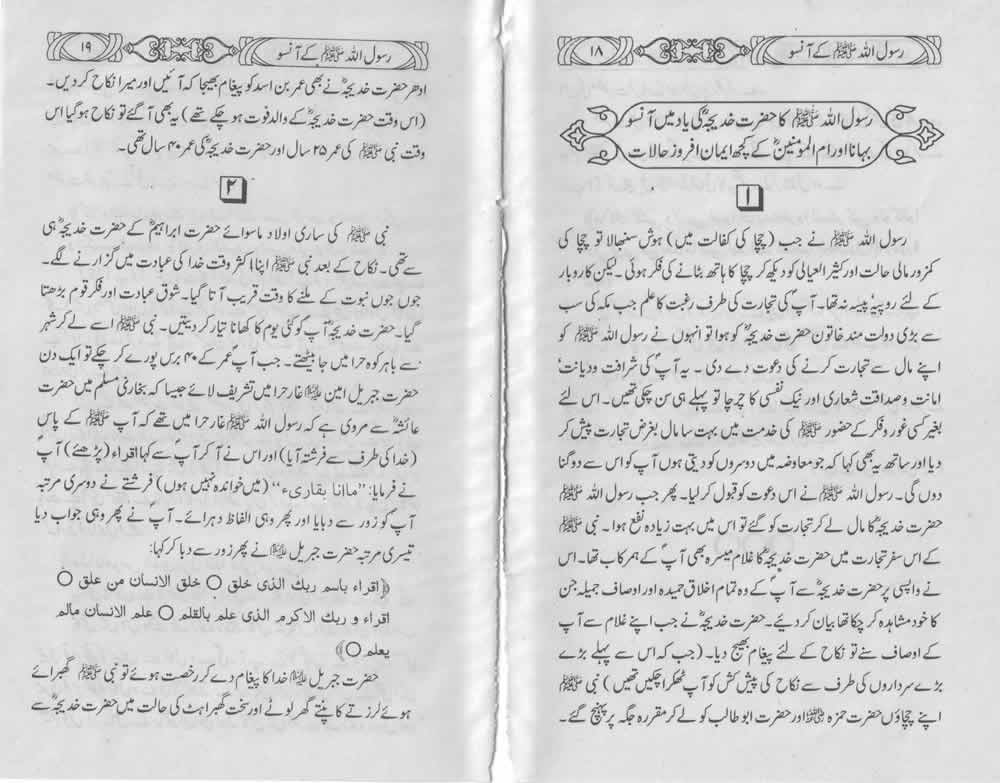 رسول اللہ ﷺ کے آنسو
۱۸
رسول اللہ ﷺ کا حضرت خدیجہؓ کی یاد میں آنسو
بہانا اور ام المومنینؓ کے کچھ ایمان افروز حالات
۱
رسول اللہ ﷺ نے جب (چچا کی کفالت میں) ہوش سنبھالا تو چچا کی
کمزور مالی حالت اور کثیر العیالی کو دیکھ کر چچا کا ہاتھ بٹانے کی فکر ہوئی۔ لیکن کاروبار
کے لئے روپیہ پیسہ نہ تھا۔ آپؐ کی تجارت کی طرف رغبت کا علم جب مکہ کی سب
سے بڑی دولت مند خاتون حضرت خدیجہؓ کو ہوا تو انہوں نے رسول اللہ ﷺ کو
اپنے مال سے تجارت کرنے کی دعوت دے دی۔ یہ آپؐ کی شرافت و دیانت'
امانت و صداقت شعاری اور نیک نفسی کا چرچا تو پہلے ہی سن چکی تھیں۔ اس لئے
بغیر کسی غور و فکر کے حضور ﷺ کی خدمت میں بہت سا مال بغرض تجارت پیش کر
دیا اور ساتھ یہ بھی کہا کہ جو معاوضہ میں دوسروں کو دیتی ہوں آپ کو اس سے دوگنا
دوں گی۔ رسول اللہ ﷺ نے اس دعوت کو قبول کر لیا۔ پھر جب رسول اللہ ﷺ
حضرت خدیجہؓ کا مال لے کر تجارت کو گئے تو اس میں بہت زیادہ نفع ہوا۔ نبی ﷺ
کے اس سفر تجارت میں حضرت خدیجہؓ کا غلام میسرہ بھی آپؐ کے ہمرکاب تھا۔ اس
نے واپسی پر حضرت خدیجہؓ سے آپؐ کے وہ تمام اخلاق حمیدہ اور اوصاف جمیلہ جن
کا خود مشاہدہ کر چکا تھا بیان کر دیئے۔ حضرت خدیجہؓ نے جب اپنے غلام سے آپ
کے اوصاف سنے تو نکاح کے لئے پیغام بھیج دیا۔ (جب کہ اس سے پہلے بڑے
بڑے سرداروں کی طرف سے نکاح کی پیش کش کو آپ ٹھکرا چکیں تھیں) نبی ﷺ
اپنے چچاؤں حضرت حمزہ ؓ اور حضرت ابو طالب کو لے کر مقررہ جگہ پر پہنچ گئے۔
رسول اللہ ﷺ کے آنسو
۱۹
ادھر حضرت خدیجہؓ نے بھی عمر بن اسد کو پیغام بھیجا کہ آئیں اور میرا نکاح کر دیں۔
(اس وقت حضرت خدیجہؓ کے والد فوت ہو چکے تھے) یہ بھی آ گئے تو نکاح ہو گیا اس
وقت نبی ﷺ کی عمر ۲۵ سال اور حضرت خدیجہؓ کی عمر ۴۰ سال تھی۔
۲
نبی ﷺ کی ساری اولاد ماسوائے حضرت ابراہیمؓ کے حضرت خدیجہؓ ہی
سے تھی۔ نکاح کے بعد نبی ﷺ اپنا اکثر وقت خدا کی عبادت میں گزارنے لگے۔
جوں جوں نبوت کے ملنے کا وقت قریب آتا گیا۔ شوق عبادت اور فکر قوم بڑھتا
گیا۔ حضرت خدیجہؓ آپؐ کو کئی یوم کا کھانا تیار کر دیتیں۔ نبی ﷺ اسے لے کر شہر
سے باہر کوہ حرا میں جا بیٹھتے۔ جب آپؐ عمر کے ۴۰ برس پورے کر چکے تو ایک دن
حضرت جبریل امین علیہ السلام غار حرا میں تشریف لائے جیسا کہ بخاری مسلم میں حضرت
عائشہؓ سے مروی ہے کہ رسول اللہ ﷺ غار حرا میں تھے کہ آپ ﷺ کے پاس
(خدا کی طرف سے فرشتہ آیا) اور اس نے آ کر آپ سے کہا اقراء (پڑھئے) آپؐ
نے فرمایا: "ماانا بقاریء" (میں خواندہ نہیں ہوں) فرشتے نے دوسری مرتبہ
آپؐ کو زور سے دبایا اور پھر وہی الفاظ دہرائے۔ آپؐ نے پھر وہی جواب دیا
تیسری مرتبہ حضرت جبریل علیہ السلام نے پھر زور سے دبا کر کہا:
﴿اقراء باسم ربك الذی خلق ○ خلق الانسان من علق ○
اقراء و ربك الاكرم الذی علم بالقلم ○ علم الانسان مالم
یعلم ○﴾
حضرت جبریل علیہ السلام خدا کا پیغام دے کر رخصت ہوئے تو نبی ﷺ گھبرائے
ہوئے لرزتے کانپتے گھر لوٹے اور سخت گھبراہٹ کی حالت میں حضرت خدیجہؓ سے